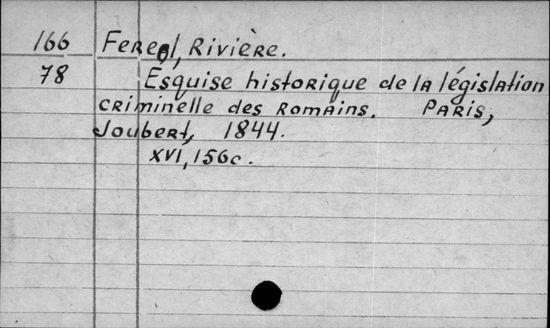 166 Fereol, Rivière.
78 Esquise historique de la législation
criminelle des Romains. Paris,
Joubert, 1844.
XVI, 156c.